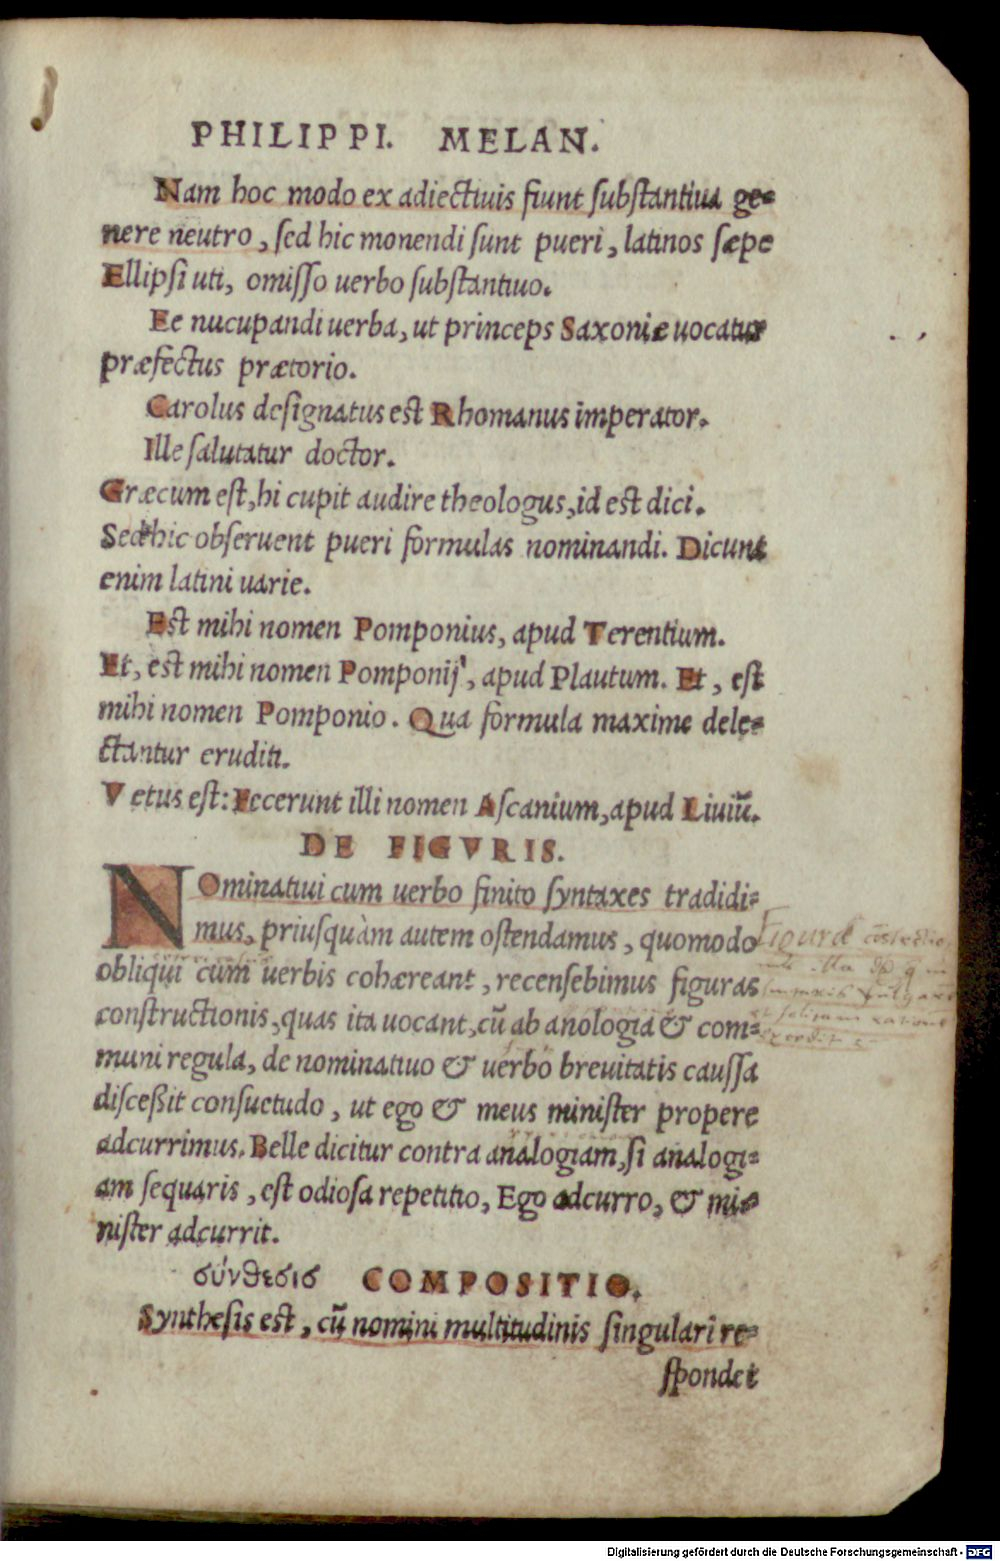 PHILIPPI. MELAN.
Nam hoc modo ex adiectiuis fiunt substantiua ge-
nere neutro, sed hic monendi sunt pueri, latinos sæpe
Ellipsi uti, omisso uerbo substantiuo.
Ee nucupandi uerba, ut princeps Saxoniæ uocatur
præfectus prætorio.
Carolus designatus est Rhomanus imperator.
Ille salutatur doctor.
Græcum est, hi cupit audire theologus, id est dici.
Sed hic obseruent pueri formulas nominandi. Dicunt
enim latini uarie.
Est mihi nomen Pomponius, apud Terentium.
Et, est mihi nomen Pomponij, apud Plautum. Et, est
mihi nomen Pomponio. Qua formula maxime dele-
ctantur eruditi.
Vetus est: Fecerunt illi nomen Ascanium, apud Liuiū.
DE FIGVRIS.
NOminatiui cum uerbo finito syntaxes tradidi-
mus, priusquàm autem ostendamus, quomodo
obliqui cum uerbis cohæreant, recensebimus figuras
constructionis, quas ita uocant, cū ab anologia & com-
muni regula, de nominatiuo & uerbo breuitatis caussa
disceßit consuetudo, ut ego & meus minister propere
adcurrimus. Belle dicitur contra analogiam, si analogi-
am sequaris, est odiosa repetitio, Ego adcurro, & mi-
nister adcurrit.
σύνθεσις COMPOSITIO.
Synthesis est, cū nomini multitudinis singulari re-
spondet
Figuræ
Digitalisierung gefördert durch die Deutsche Forschungsgemeinschaft - DFG